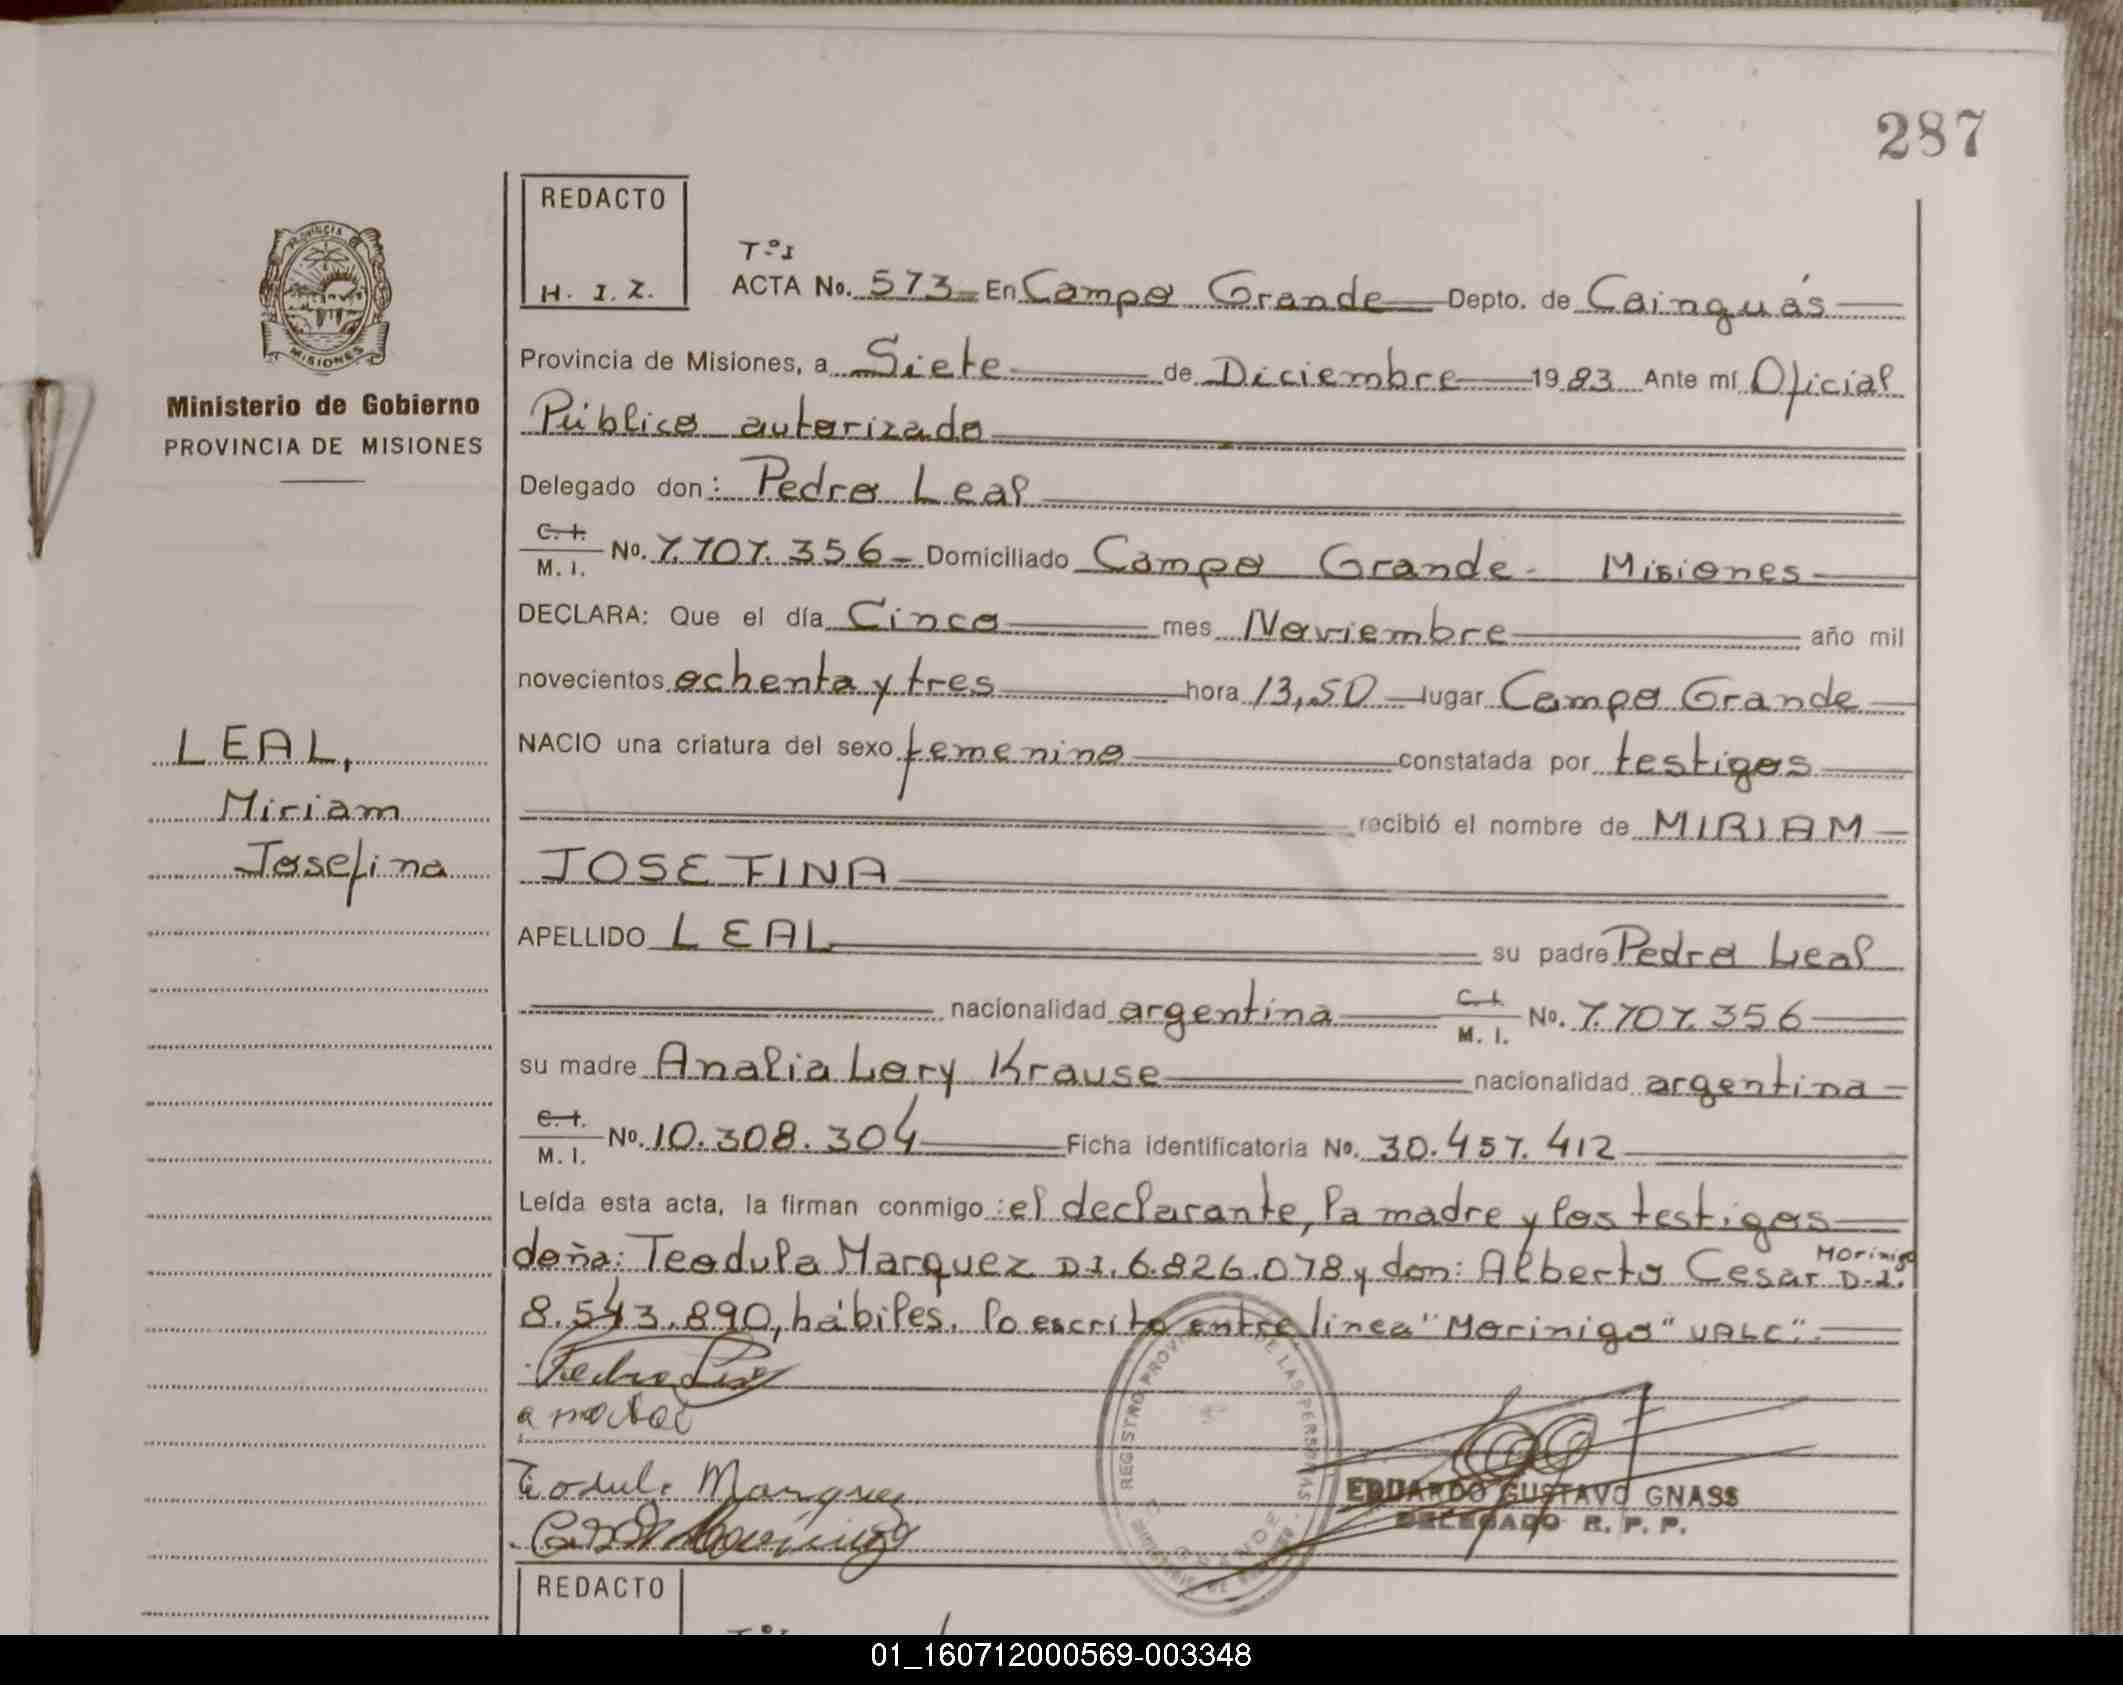 287
REDACTO
H. I. Z.
PROVINCIA DE
MISIONES
Ministerio de Gobierno
PROVINCIA DE MISIONES
LEAL,
Miriam
Josefina
Tº I
ACTA No. 573 En Campo Grande Depto. de Cainguás
Provincia de Misiones, a Siete de Diciembre 1983 Ante mí Oficial
Público autorizado
Delegado don: Pedro Leal
C. I. M. I. No. 7.707.356 Domiciliado Campo Grande - Misiones
DECLARA: Que el día Cinco mes Noviembre año mil
novecientos ochenta y tres hora 13,50 lugar Campo Grande
NACIO una criatura del sexo femenino constatada por testigos
recibió el nombre de MIRIAM
JOSEFINA
APELLIDO LEAL su padre Pedro Leal
nacionalidad argentina C. I. M. I. No. 7.707.356
su madre Analia Lory Krause nacionalidad argentina
C. I. M. I. No. 10.308.304 Ficha identificatoria No. 30.457.412
Leída esta acta, la firman conmigo: el declarante, la madre y los testigos
doña: Teodula Marquez D.I. 6.826.078 y don: Alberto Cesar Morinigo D.I.
8.543.890, hábiles. lo escrito entre linea "Morinigo" VALE".
Pedro Leal
Teodul. Marquez
REGISTRO PROVINCIAL DE LAS PERSONAS
EDUARDO GUSTAVO GNASS
DELEGADO R. P. P.
REDACTO
01_160712000569-003348